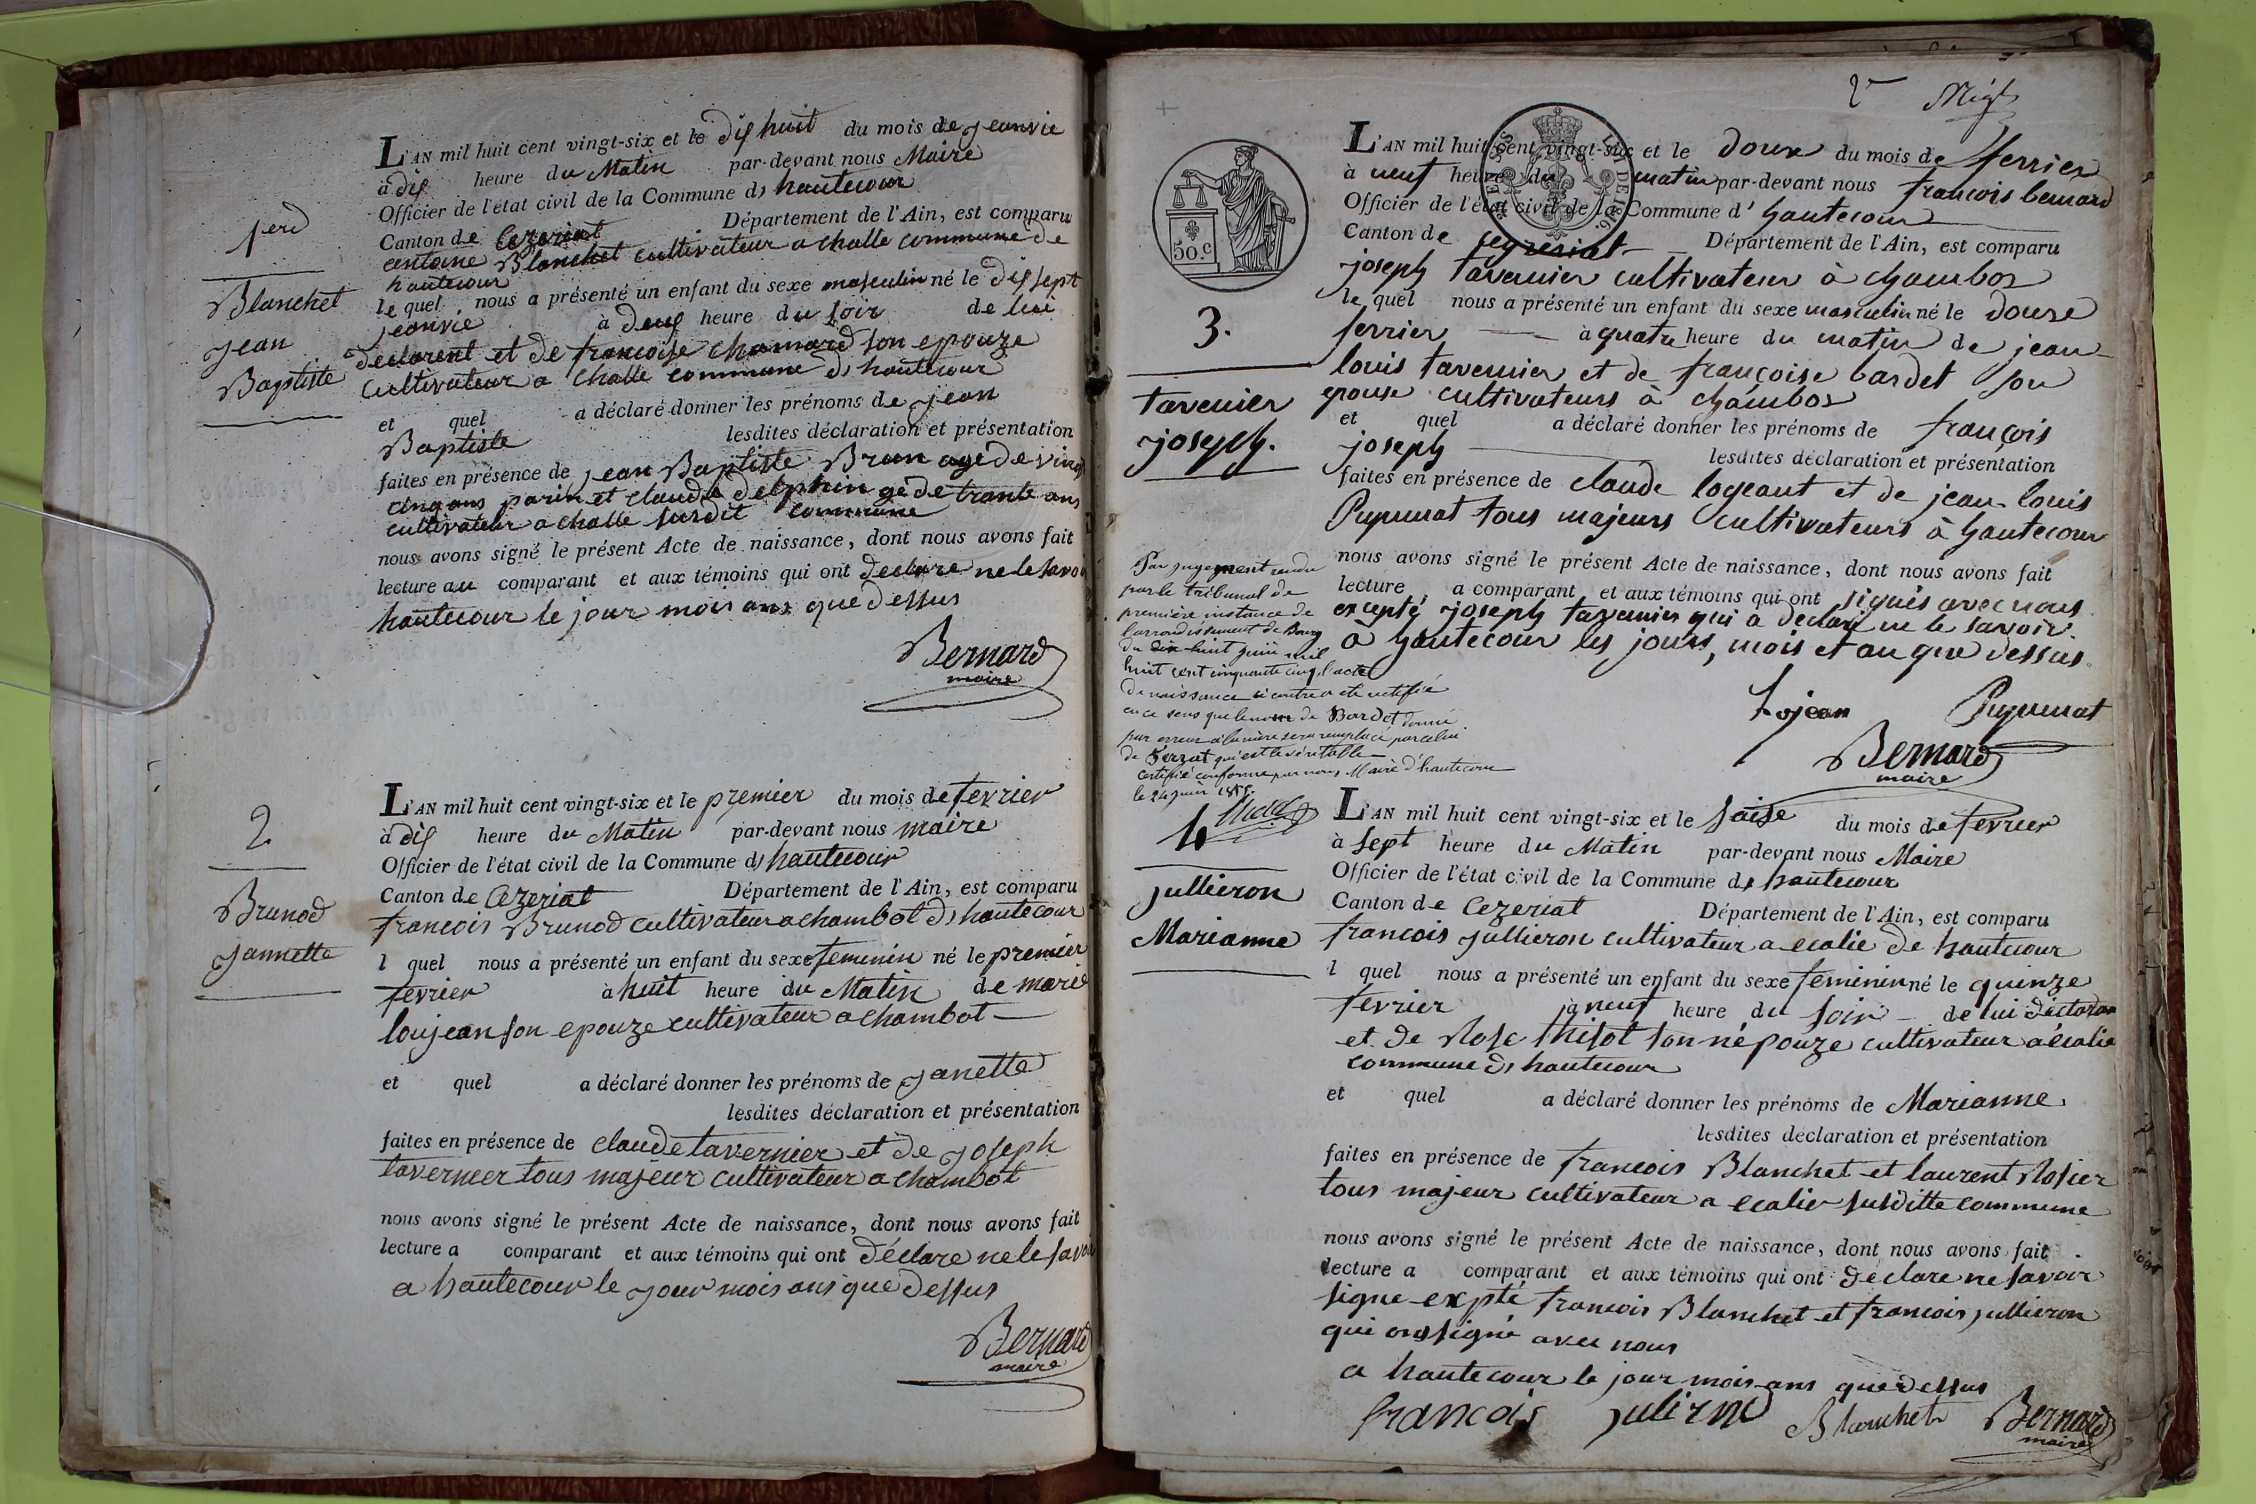 1erd
Blanchet
Jean
Baptiste
L'AN mil huit cent vingt-six et le dix huit du mois de Jeanvie
à dix heure du Matin par-devant nous Maire
Officier de l'état civil de la Commune d, hautecour
Canton de Cezeriat Département de l'Ain, est comparu
antoine Blanchet cultivateur a challe commune de
hautecour
le quel nous a présenté un enfant du sexe masculin né le dix sept
jeanvie à deux heure du soir de lui
declarent et de francoise chamard son epouze
cultivateur a challe commune d, hautecour
et quel a déclaré donner les prénoms de jean
Baptiste lesdites déclaration et présentation
faites en présence de jean Baptiste Brun agé de vingt
cinq ans parin et claude delphin gé de trante ans
cultivateur a challe susdit commune
nous avons signé le présent Acte de naissance, dont nous avons fait
lecture au comparant et aux témoins qui ont declare ne le savoi
hautecour le jour mois ans que dessus
Bernard
maire
2
Brunod
Jannette
L'AN mil huit cent vingt-six et le premier du mois de fevrier
à dix heure du Matin par-devant nous maire
Officier de l'état civil de la Commune d, hautecour
Canton de Cezeriat Département de l'Ain, est comparu
francois Brunod cultivateur a chambot d, hautecour
l quel nous a présenté un enfant du sexe feminin né le premier
fevrier à huit heure du Matin de marie
loujean son epouze cultivateur a chambot
et quel a déclaré donner les prénoms de Janette
lesdites déclaration et présentation
faites en présence de claude tavernier et de Joseph
tavernier tous majeur cultivateur a chambot
nous avons signé le présent Acte de naissance, dont nous avons fait
lecture a comparant et aux témoins qui ont déclare ne le savoi
a hautecour le jour mois ans que dessus
Bernard
maire
50.c
3.
tavernier
joseph.
L'AN mil huit cent vingt-six et le douze du mois de ferrier
à neuf heure du matin par-devant nous francois bernard
Officier de l'état civil de la Commune d' hautecour
Canton de segzeriat Département de l'Ain, est comparu
joseph tavernier cultivateur à chambos
le quel nous a présenté un enfant du sexe masculin né le douze
ferrier à quatre heure du matin de jean
louis tavernier et de françoise bardet son
epouse cultivateurs à chambos
et quel a déclaré donner les prénoms de françois
joseph lesdites déclaration et présentation
faites en présence de claude logeant et de jean louis
Puyunat tous majeurs cultivateurs à hautecour
nous avons signé le présent Acte de naissance, dont nous avons fait
lecture, a comparant et aux témoins qui ont signés avec nous
excepté joseph tavernier qui a declaré ne le savoir.
a hautecour les jours, mois et an que dessus.
Lojean Puyunat
Bernard
maire
Par jugement rendu
par le tribunal de
première instance de
l'arrondissement de Bourg
du dix huit juin mil
huit cent cinquante cinq, l'acte
de naissance ci contre a été rectifié
en ce sens que le nom de Bardet donné
par erreur à la mère sera remplacé par celui
de Ferrat qui est le véritable
certifié conforme par nous Maire d'hautecour
le 24 juin 1855.
4
Jullieron
Marianne
L'AN mil huit cent vingt-six et le saise du mois de fevrier
à sept heure du Matin par-devant nous Maire
Officier de l'état civil de la Commune d, hautecour
Canton de Cezeriat Département de l'Ain, est comparu
francois Jullieron cultivateur a ecalie de hautecour
l quel nous a présenté un enfant du sexe feminin né le quinze
fevrier à neuf heure du soir de lui déclaran
et de Rose thisot son népouze cultivateur a écalie
commune d, hautecour
et quel a déclaré donner les prénoms de Marianne
lesdites declaration et présentation
faites en présence de francois Blanchet et laurent Rosier
tous majeur cultivateur a ecalier susditte commune
nous avons signé le présent Acte de naissance, dont nous avons fait
lecture a comparant et aux témoins qui ont déclare ne savoir
signe expté francois Blanchet et francois jullieron
qui onsigné avec nous
a hautecour le jour mois ans que dessus
francois julirno Blanchet Bernard
maire